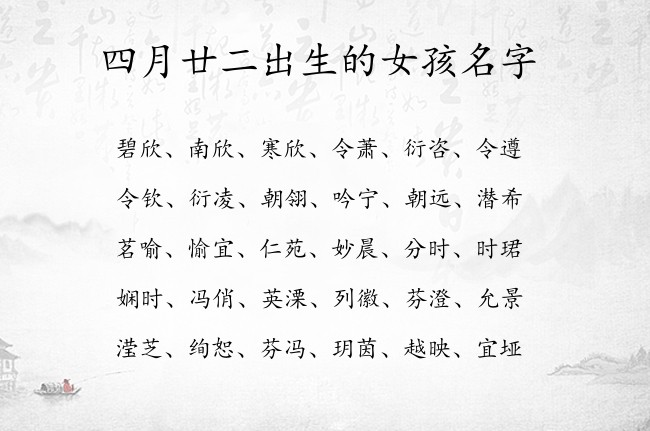 四月廿二出生的女孩名字
碧欣、南欣、寒欣、令萧、衍咨、令遵
令钦、衍凌、朝翎、吟宁、朝远、潜希
茗喻、愉宜、仁苑、妙晨、分时、时珺
娴时、冯俏、英溧、列徽、芬澄、允景
滢芝、绚恕、芬冯、玥茵、越映、宜垭